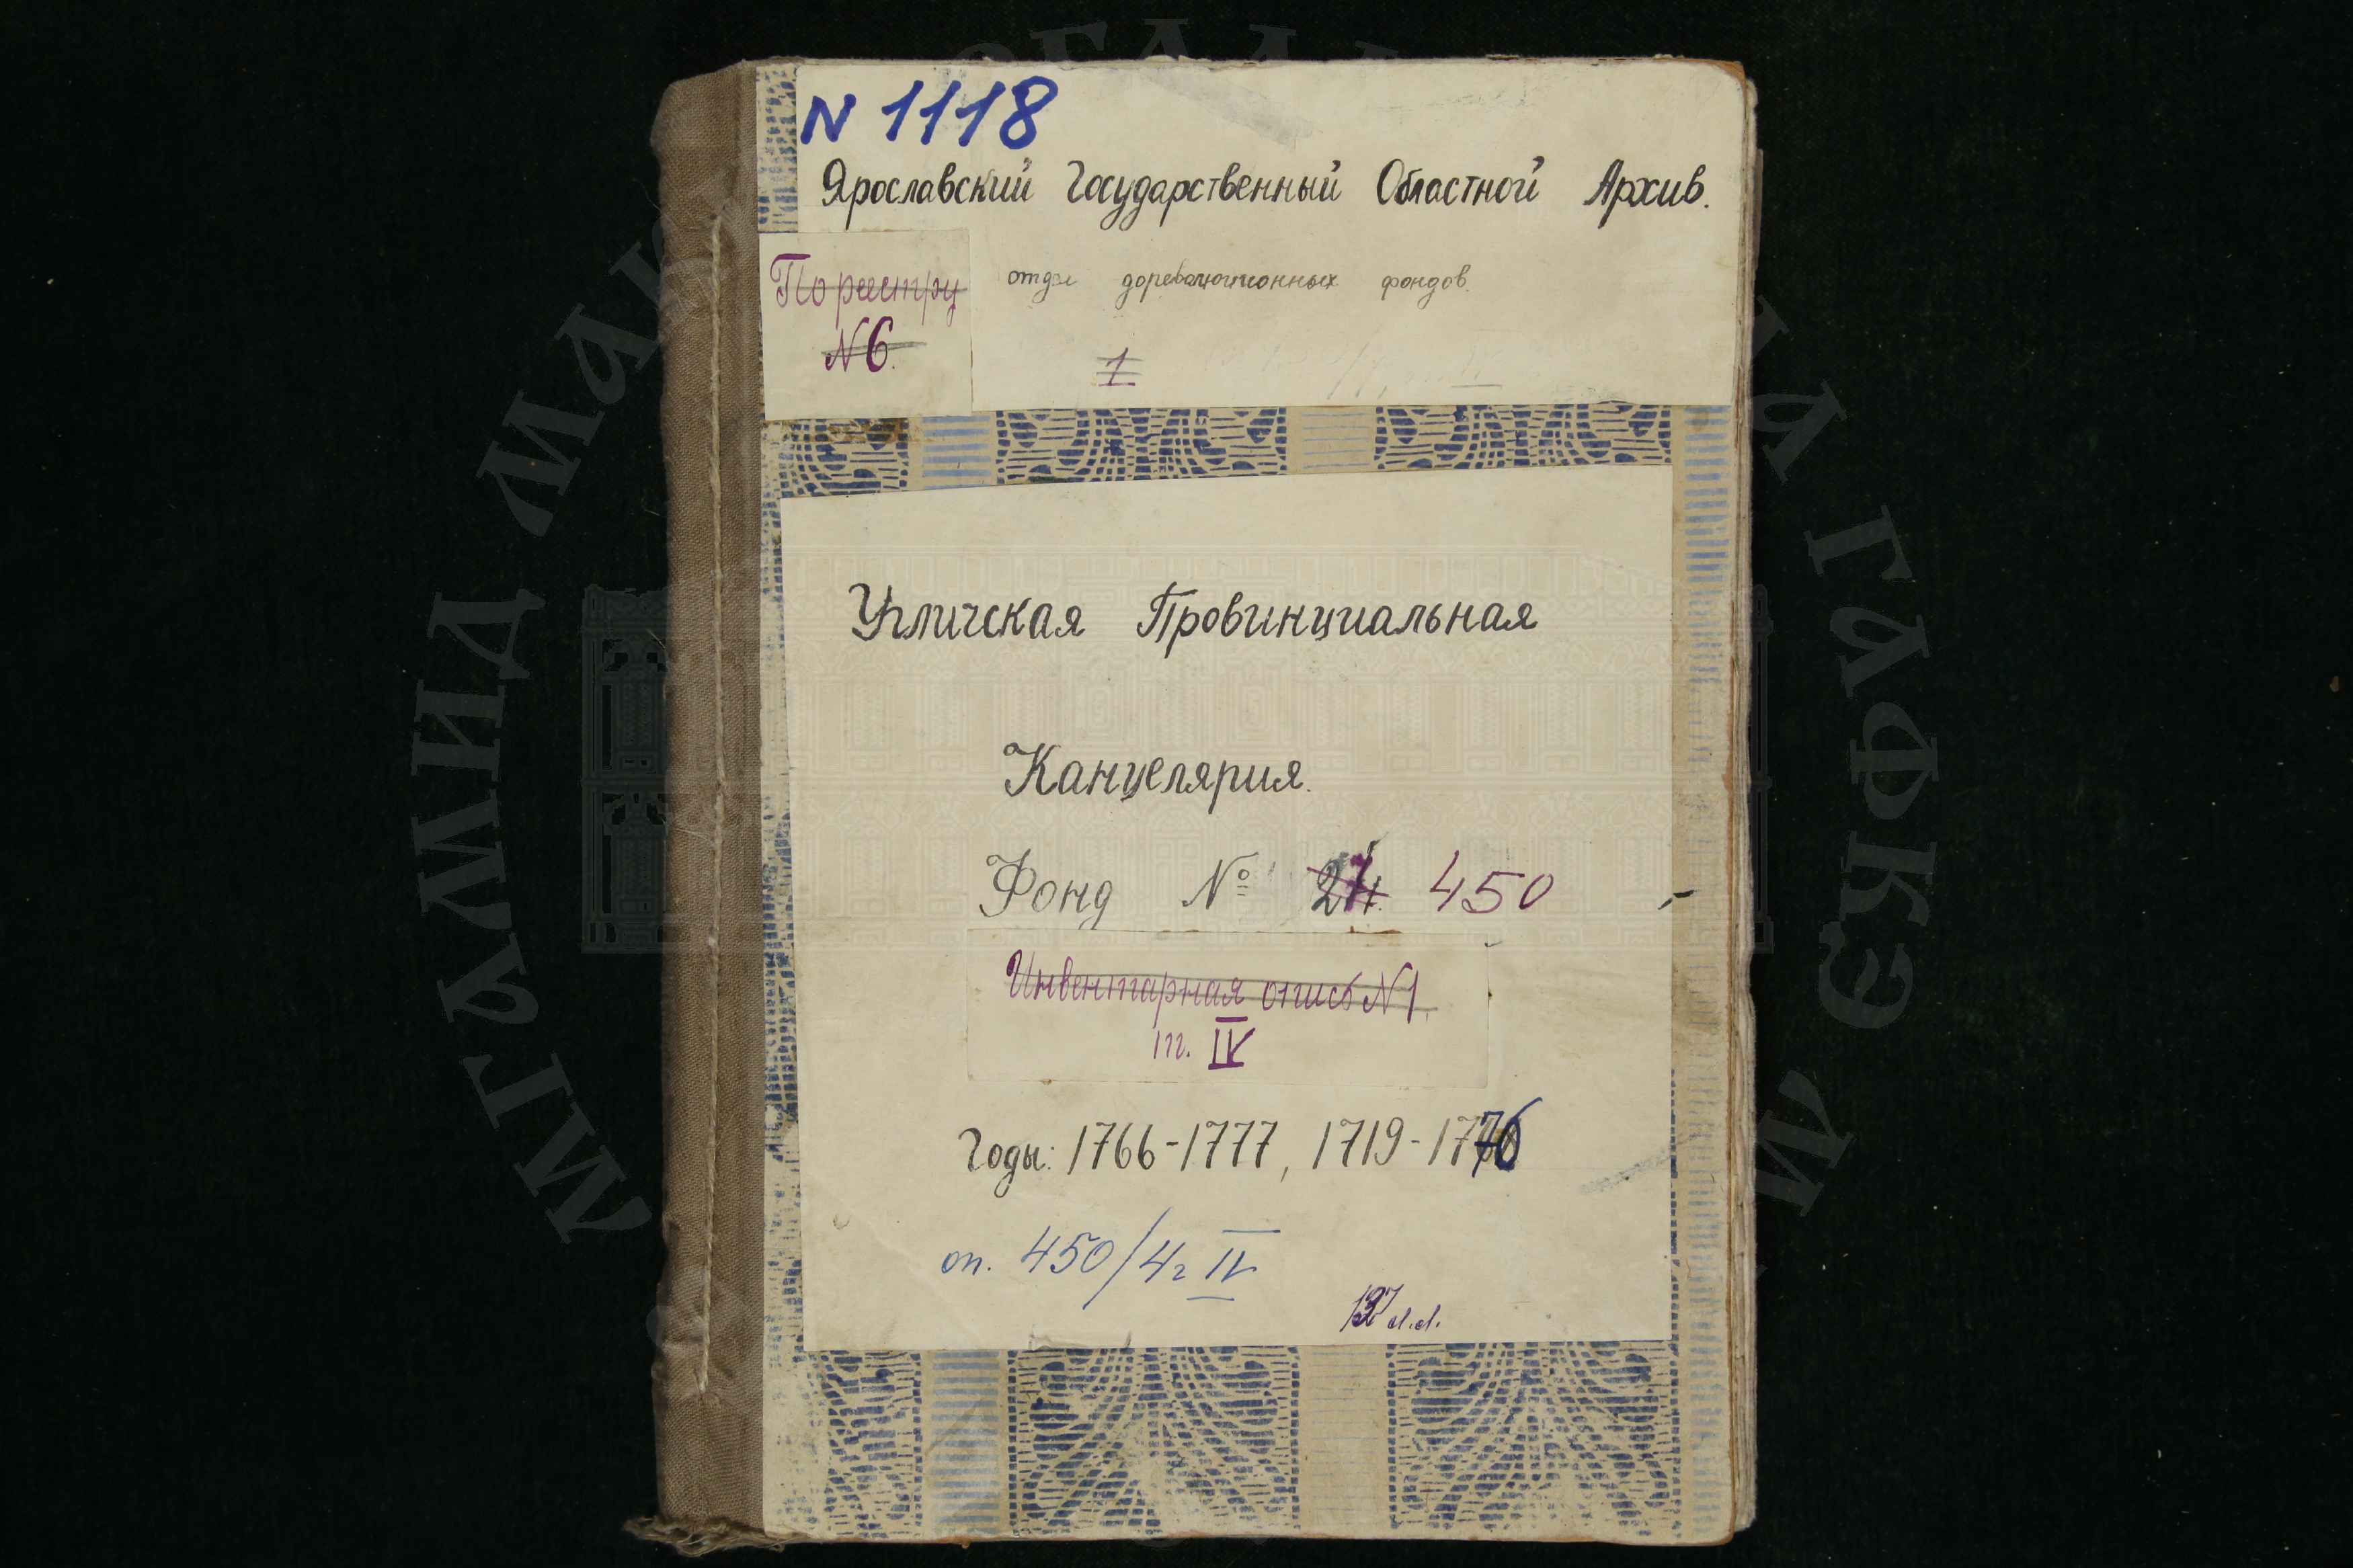 N 1118
Ярославский Государственный Областной Архив.
По реестру
отдел дореволюционных фондов.
N 6.
1
Угличская Провинциальная
Канцелярия.
Фонд № 450
Инвентарная опись N 1.
т. IV
Годы: 1766-1777, 1719-1776
оп. 450/4 IV
137